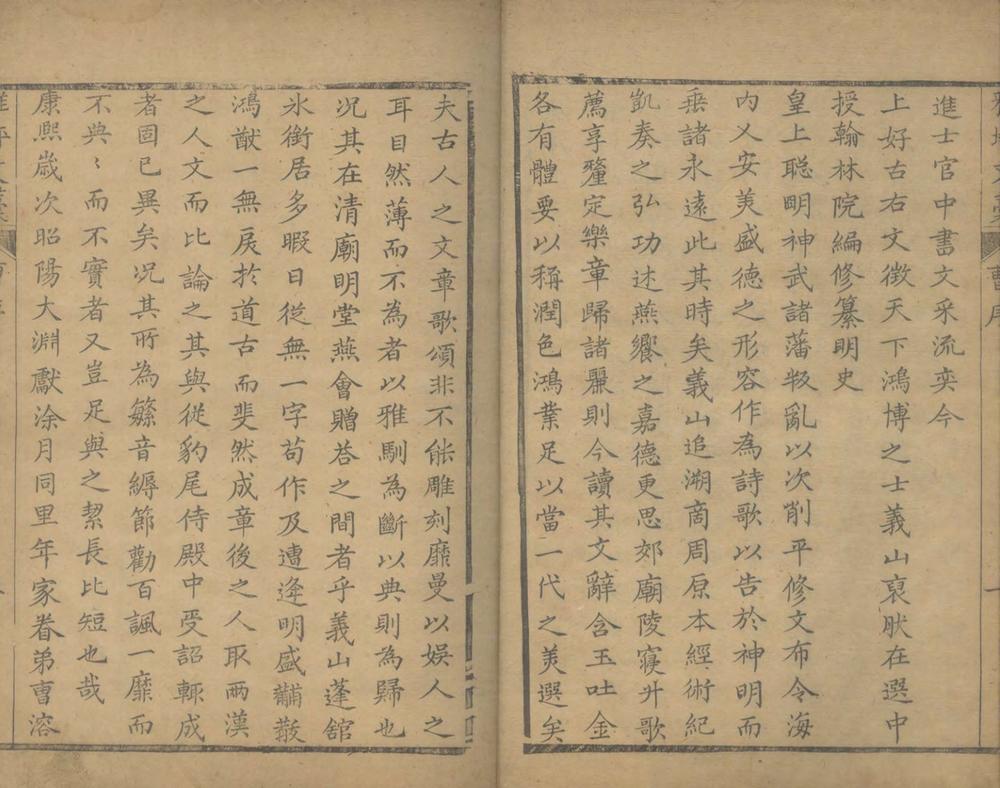 曹序
進士官中書文采流奕今
上好古右文徵天下鴻博之士義山裒肰在選中
授翰林院編修纂明史
皇上聰明神武諸藩叛亂以次削平修文布令海
內乂安美盛德之形容作為詩歌以告於神明而
垂諸永遠此其時矣義山追溯商周原本經術紀
凱奏之弘功述燕饗之嘉德更思郊廟陵寢升歌
薦享釐定樂章歸諸麗則今讀其文辭含玉吐金
各有體要以稱潤色鴻業足以當一代之美選矣
夫古人之文章歌頌非不能雕刻靡曼以娛人之
耳目然薄而不為者以雅馴為斷以典則為歸也
況其在清廟明堂燕會贈荅之間者乎義山蓬舘
氷銜居多暇日從無一字苟作及遭逢明盛黼黻
鴻猷一無戾於道古而斐然成章後之人取兩漢
之人文而比論之其與從豹尾侍殿中受詔輒成
者固已異矣況其所為繁音縟節勸百諷一靡而
不典〻而不實者又豈足與之絜長比短也哉
康熙歲次昭陽大淵獻涂月同里年家眷弟曹溶